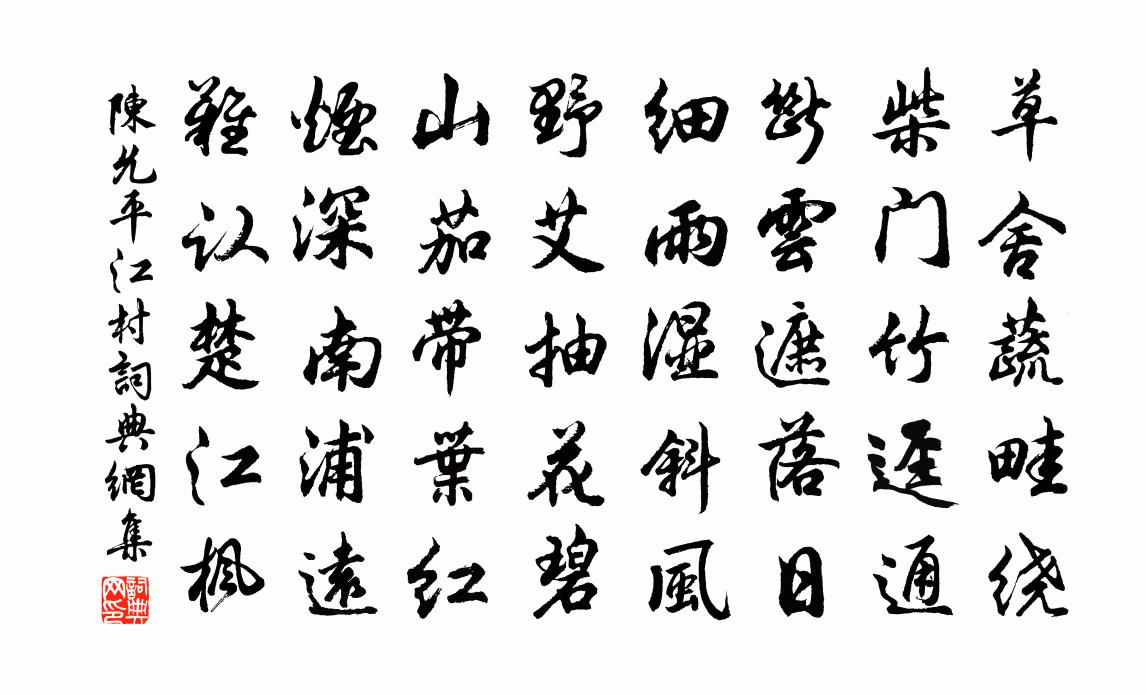 草舍蔬畦绕
柴门竹逕通
斷雲遮落日
细雨湿斜風
野艾抽花碧
山茄带葉红
煙深南浦遠
難认楚江楓
陳允平江村詞典網集
詞典网印